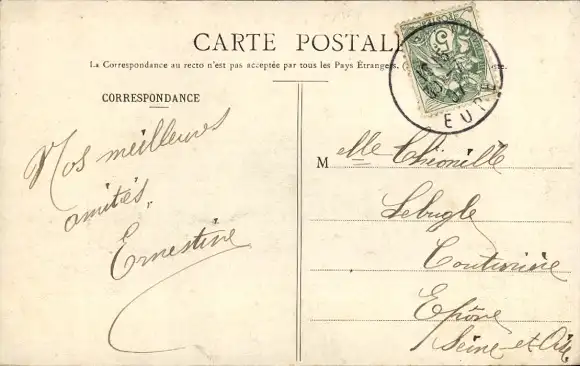 CARTE POSTALE
La Correspondance au recto n'est pas acceptée par tous les Pays Étrangers. (
CORRESPONDANCE
Nos meilleures
amitiés,
Ernestine
5
EURE
M elle Théonille
Lebugle
Couturière
Epône
Seine-et-Oise